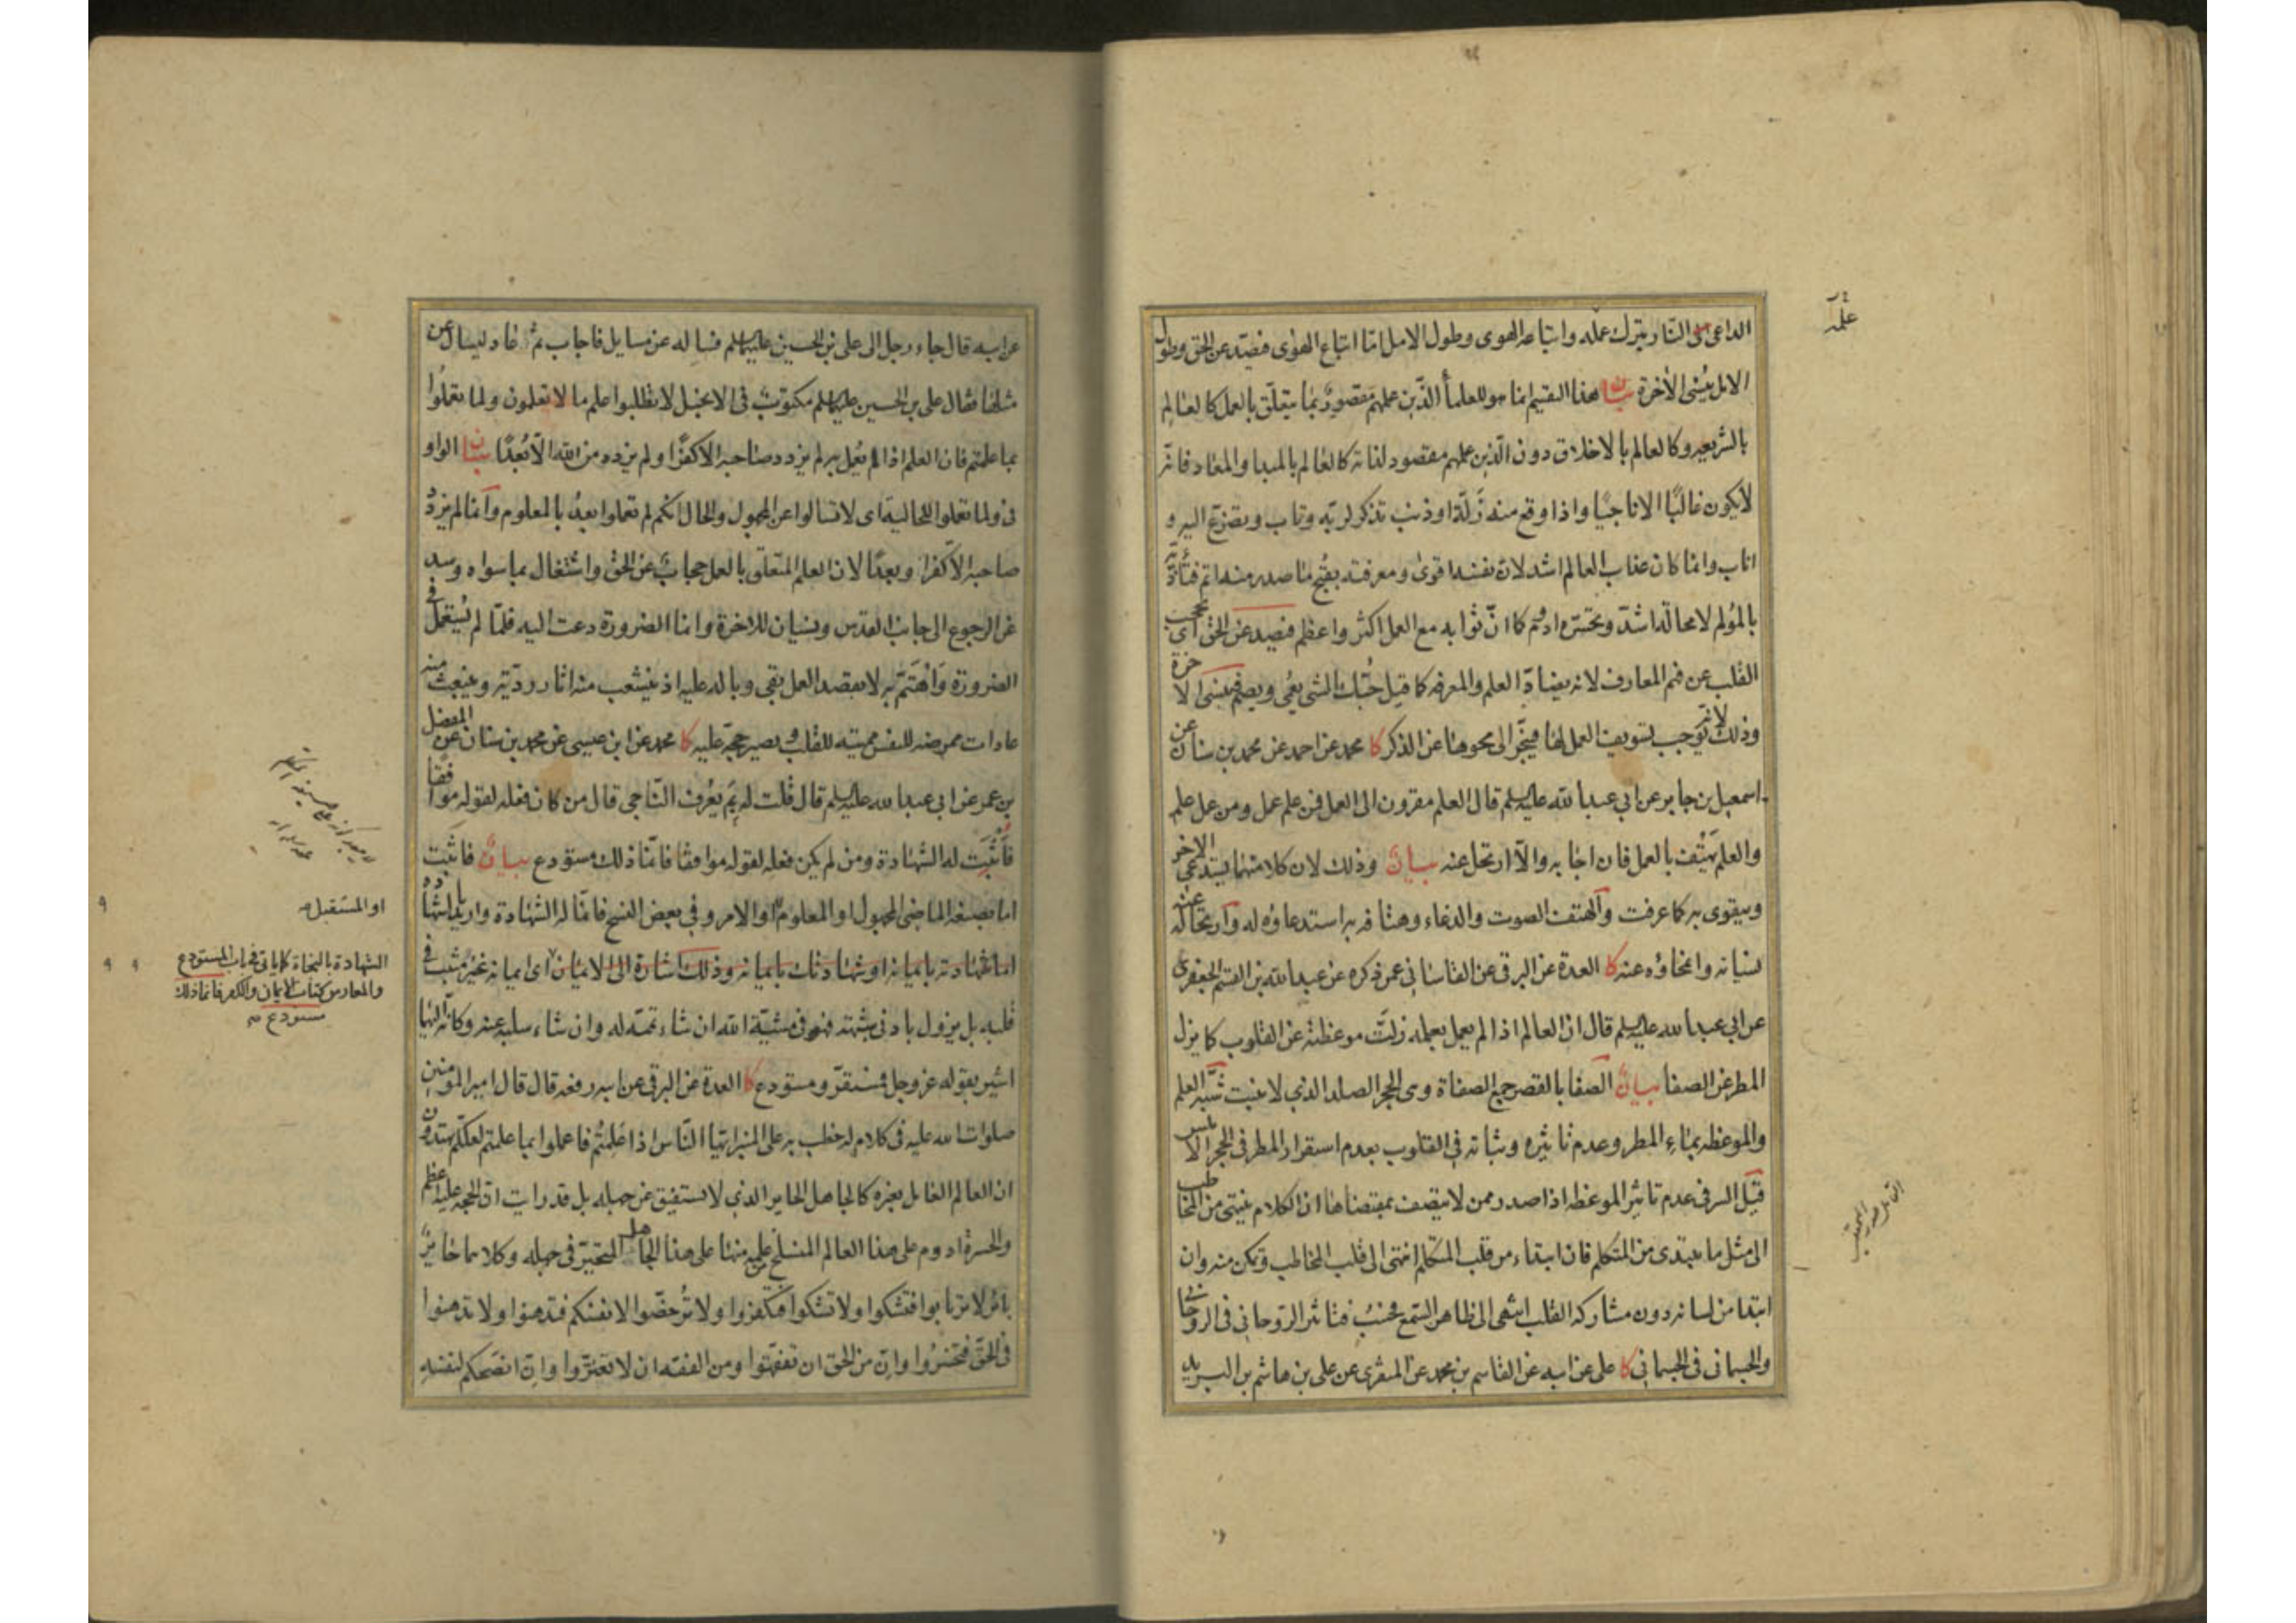 الداعي الى النار بترك علمه واتباعه الهوى وطول الامل اما اتباع الهوى فيصد عن الحق وطول
الامل ينسى الاخرة بيان هذا التقسيم انما هو للعلماء الذين علمهم مقصور بما يتعلق بالعمل كالعالم
بالشريعه وكالعالم بالاخلاق دون الذين علمهم مقصود لذاته كالعالم بالمبدا والمعاد فانه
لايكون غالبا الا ناجيا واذا وقع منه زلة او ذنب تذكر لربه وتاب وتضرع اليه و
اناب وانما كان عذاب العالم اشد لان نفسه اقوى ومعرفته بقبح ما صدر منه اتم فتأذيه
بالمولم لامحالة اشد وتحسره ادوم كما ان ثوابه مع العمل اكثر واعظم فيصد عن الحق اى يحجب
القلب عن فهم المعارف لانه يضاد العلم والمعرفه كما قيل حبك الشى يعمى ويصم فينسى الاخرة
وذلك لانه يوجب تسويف العمل لها فينجر الى محوها عن الذكر كا محمد عن احمد عن محمد بن سنان عن
اسمعيل بن جابر عن ابي عبد الله عليه السلم قال العلم مقرون الى العمل فمن علم عمل ومن عمل علم
والعلم يهتف بالعمل فان اجابه والا ارتحل عنه بيان وذلك لان كلا منهما يستدعي الاخر
ويقوى به كما عرفت والهتف الصوت والدعاء وهتافه به استدعاؤه له وارتحاله عنه
نسيانه وانمحاؤه عنه كا العدة عن البرقي عن القاساني عمن ذكره عن عبد الله بن القسم الجعفرى
عن ابي عبد الله عليه السلم قال ان العالم اذا لم يعمل بعلمه زلت موعظته عن القلوب كما يزل
المطر عن الصفا بيان الصفا بالقصر جمع الصفاة وهى الحجر الصلد الذي لا ينبت شبه العلم
والموعظه بماء المطر وعدم تاثيره وثباته في القلوب بعدم استقرار المطر في الحجر الاملس
قيل السر في عدم تاثير الموعظه اذا صدر ممن لا يتصف بمقتضاها ان الكلام ينتهى من المخاطب
الى مثل ما يبتدى من المتكلم فان ابتداء من قلب المتكلم انتهى الى قلب المخاطب وتمكن منه وان
ابتدا من لسانه دون مشاركة القلب انتهى الى ظاهر السمع فحسب فتاثير الروحاني في الروحاني
والجسماني في الجسماني كا علي عن ابيه عن القاسم بن محمد عن المنقرى عن علي بن هاشم بن البريد
علمه
عن ابيه قال جاء رجل الى على بن الحسين عليهما السلم فساله عن مسايل فاجاب ثم عاد ليسال عن
مثلها فقال على بن الحسين عليهما السلم مكتوب في الانجيل لا تطلبوا علم ما لا تعلمون ولما تعملوا
بما علمتم فان العلم اذا لم يعمل به لم يزدد صاحبه الا كفرا ولم يزدد من الله الا بعدا بيان الواو
في ولما تعملوا للحالية اى لا تسالوا عن المجهول والحال انكم لم تعملوا بعد بالمعلوم وانما لم يزدد
صاحبه الا كفرا وبعدا لان العلم المتعلق بالعمل حجاب عن الحق واشتغال بما سواه وسد
عن الرجوع الى جانب القدس ونسيان للاخرة وانما الضرورة دعت اليه فلما لم يستعمل في
الضرورة واهتم به لا بقصد العمل بقي وباله عليه اذ ينشعب منه اثار رديه وينبعث منه
عادات ممرضه للنفس مميته للقلب ويصير حجة عليه كا محمد عن ابن عيسى عن محمد بن سنان عن المفضل
بن عمر عن ابي عبد الله عليه السلم قال قلت له بم يعرف الناجى قال من كان فعله لقوله موافقا
فأثبت له الشهادة ومن لم يكن فعله لقوله موافقا فانما ذلك مستودع بيان فاثبت
اما بصيغه الماضى المجهول او المعلوم او الامر وفي بعض النسخ فانما له الشهادة واريد بالشهادة
اما شهادته بايمانه او شهادتك بايمانه وذلك اشارة الى الايمان اى ايمانه غير مثبت في
قلبه بل يزول بادنى شبهة فهو في مشية الله ان شاء تممه له وان شاء سلبه عنه وكانه اليها
اشير بقوله عز وجل فمستقر ومستودع كا العدة عن البرقى عن ابيه رفعه قال قال امير المومنين
صلوات الله عليه في كلام له خطب به على المنبر ايها الناس اذا علمتم فاعملوا بما علمتم لعلكم تهتدون
ان العالم العامل بغيره كالجاهل الحاير الذي لا يستفيق عن جهله بل قد رايت ان الحجه عليه اعظم
والحسرة ادوم على هذا العالم المنسلخ من علمه منها على هذا الجاهل المتحير في جهله وكلاهما حاير
باير لا ترتابوا فتشكوا ولا تشكوا فتكفروا ولا ترخصوا لانفسكم فتدهنوا ولا تدهنوا
في الحق فتخسروا وان من الحق ان تفقهوا ومن الفقه ان لا تغتروا وان انصحكم لنفسه
او المستقبل
الشهادة بالنجاة كما ياتى في باب المستودع
والمعار من كتاب الايمان والكفر فانما ذلك
مستودع